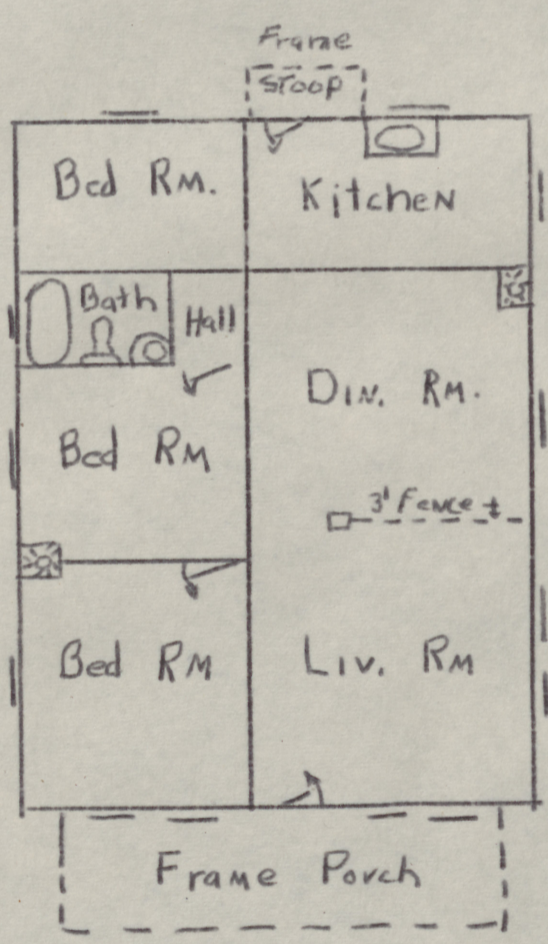 Frame
Stoop
Bed Rm.
Kitchen
Bath
Hall
Din. Rm.
Bed Rm
3' Fence ±
Bed Rm
Liv. Rm
Frame Porch